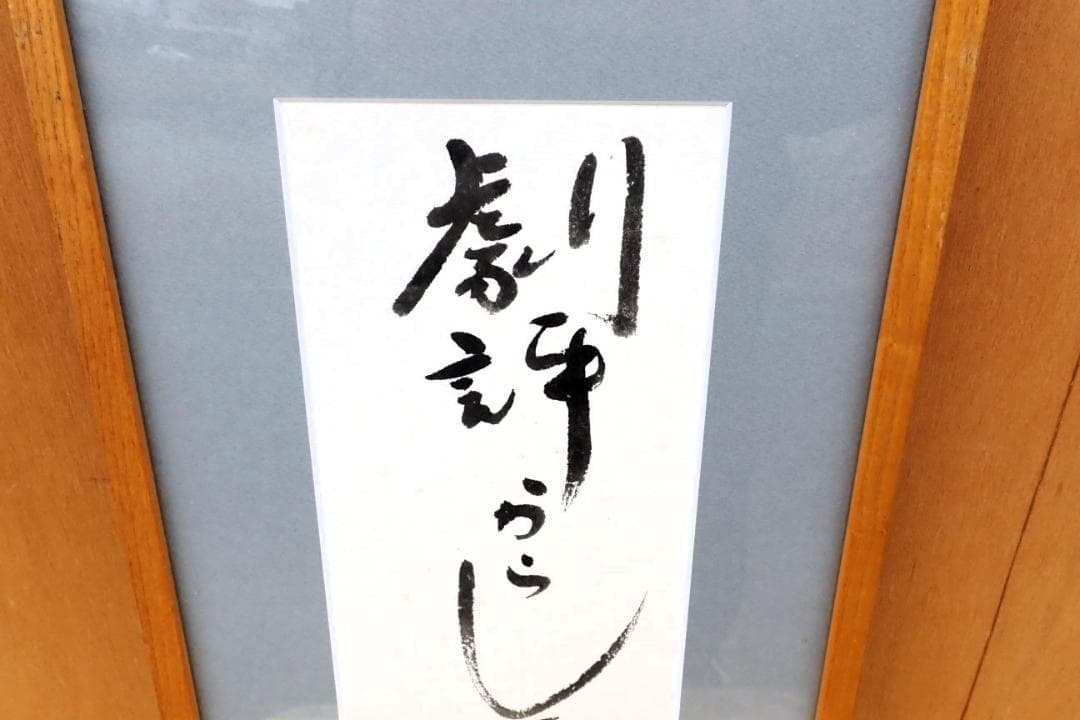 劇評からし